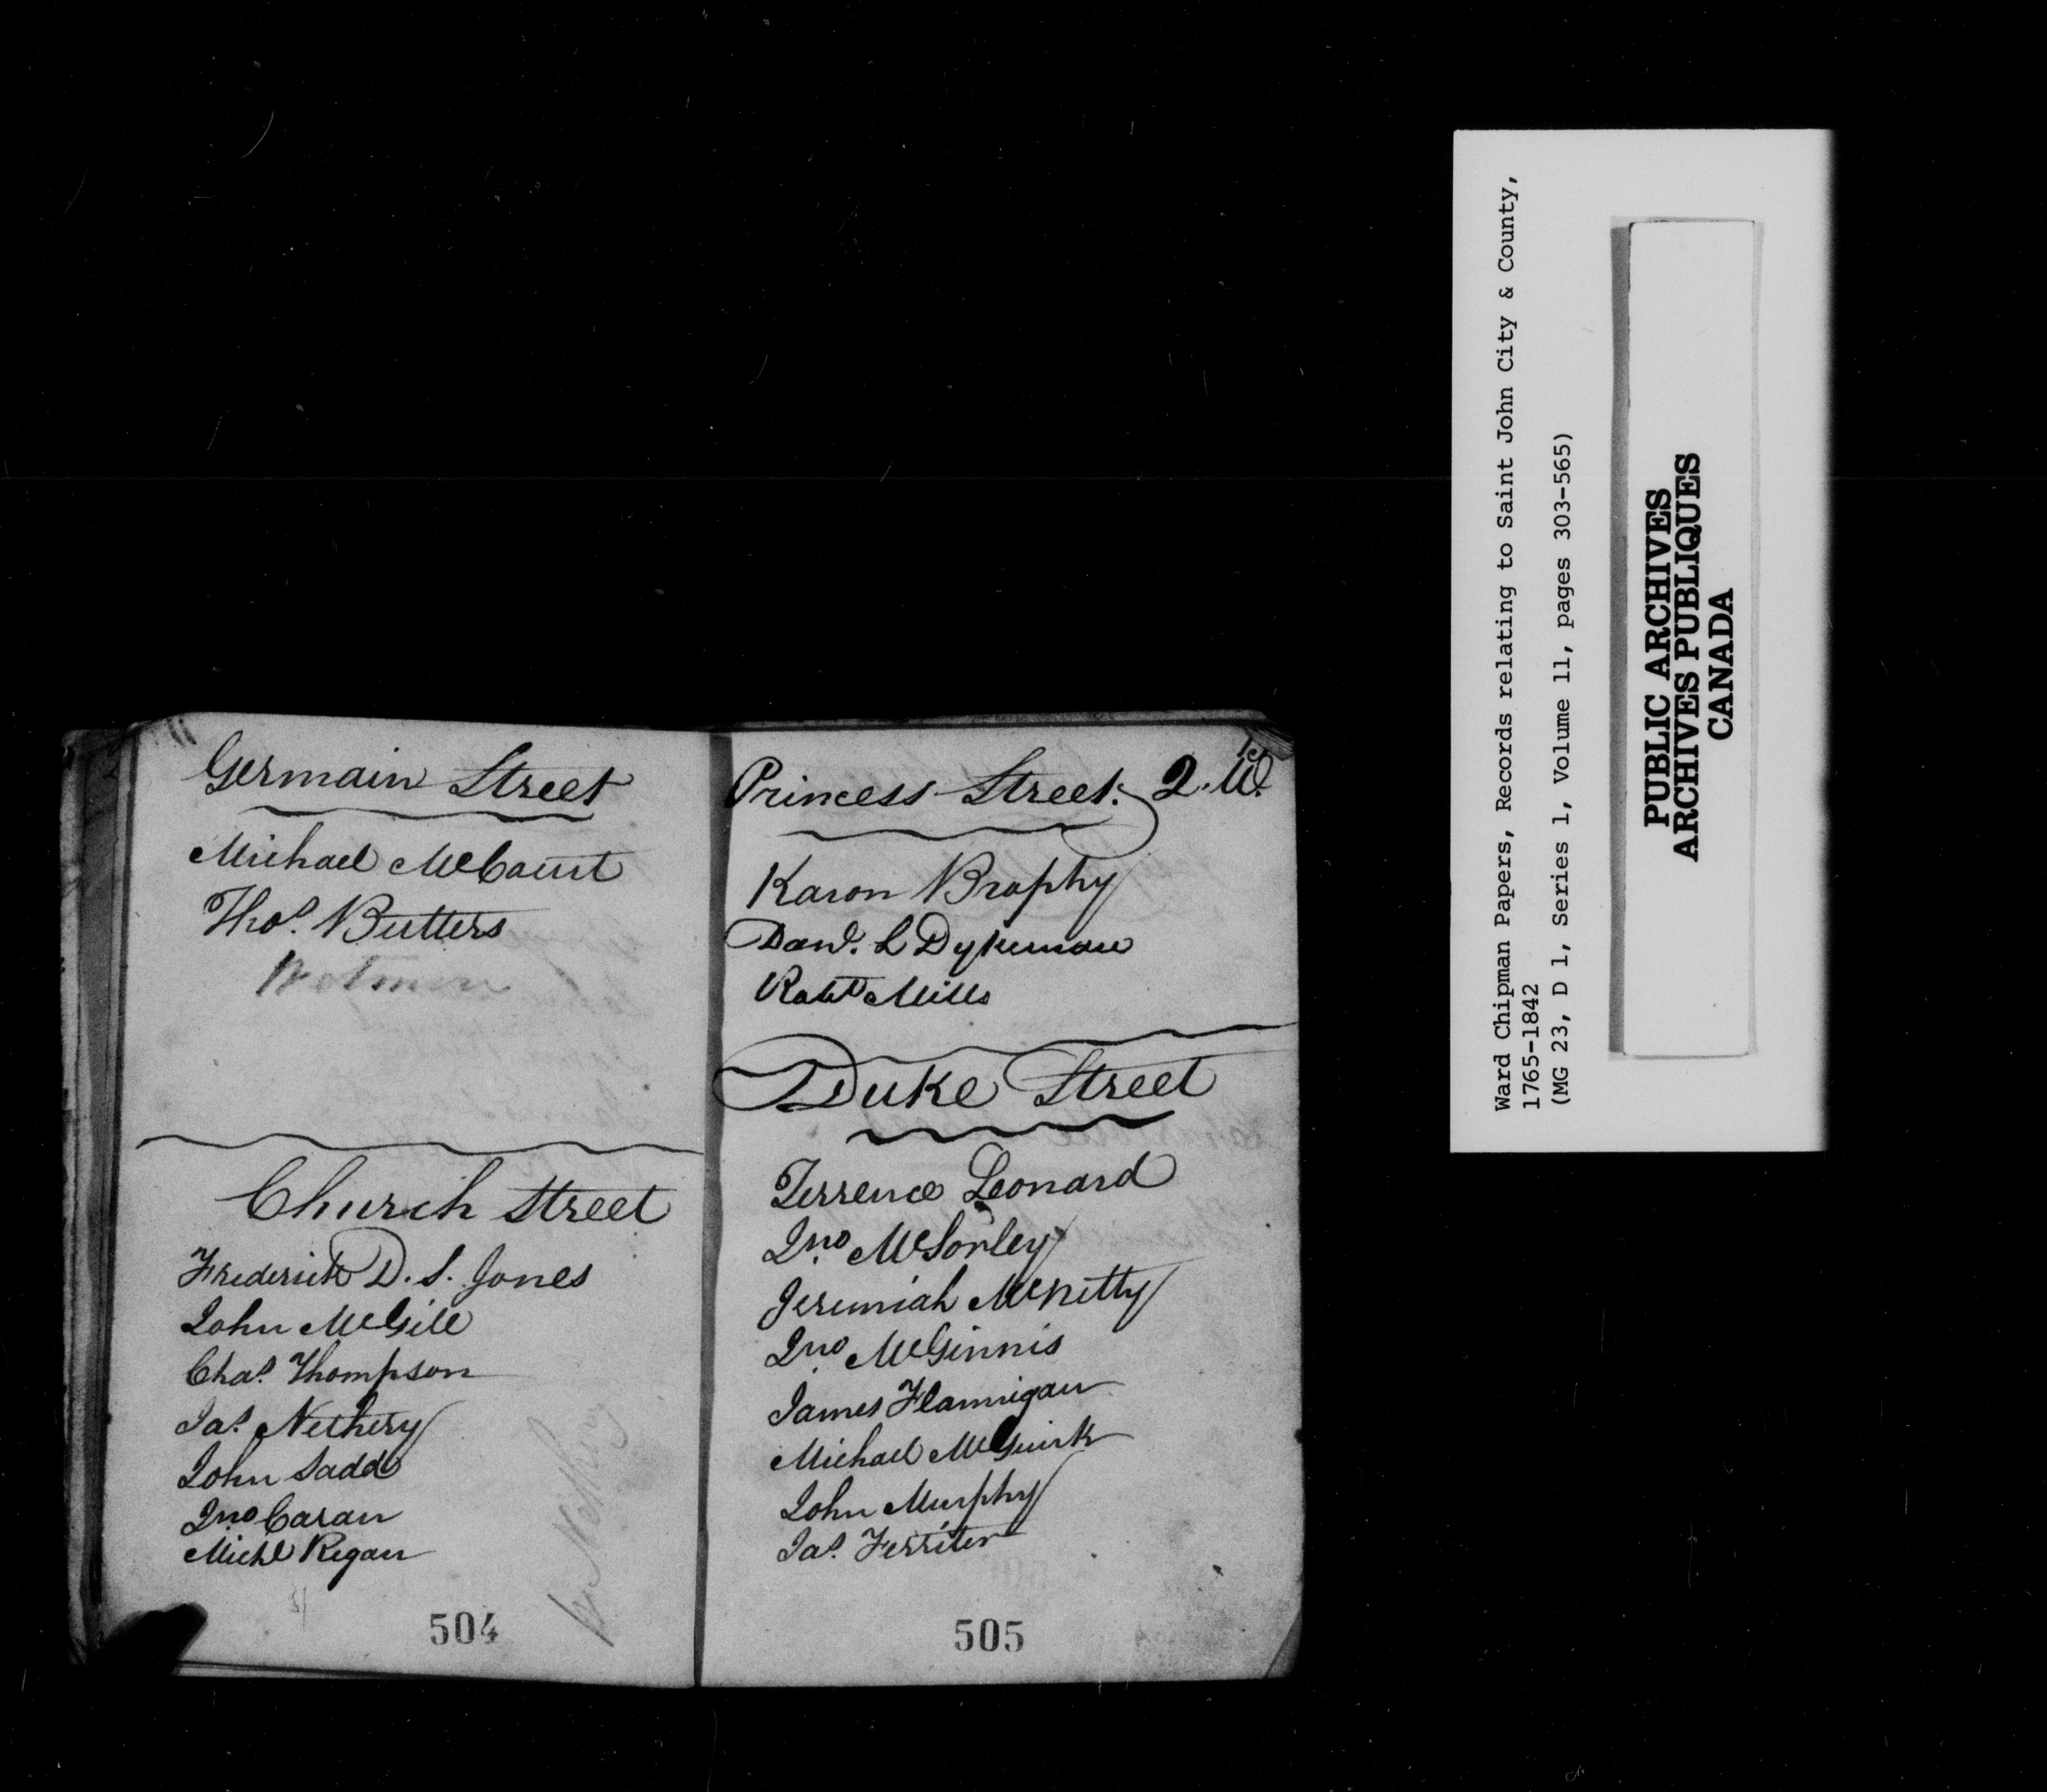 Germain Street
Michael McCourt
Thos. Butters
Church Street
Frederick D. S. Jones
John McGill
Chas. Thompson
Jas. Nethery
John Sadd
Jno. Caran
Michl Regan
Nethery
504
Princess Street. 2. Wd.
Karon Brophy
Danl. L Dykeman
Robt Mills
Duke Street
Terrence Leonard
Jno. McSorley
Jeremiah McNitty
Jno. McGinnis
James Flannigan
Michael McGuirk
John Murphy
Jas. Ferriter
505
Ward Chipman Papers, Records relating to Saint John City & County,
1765-1842
(MG 23, D 1, Series 1, Volume 11, pages 303-565)
PUBLIC ARCHIVES
ARCHIVES PUBLIQUES
CANADA